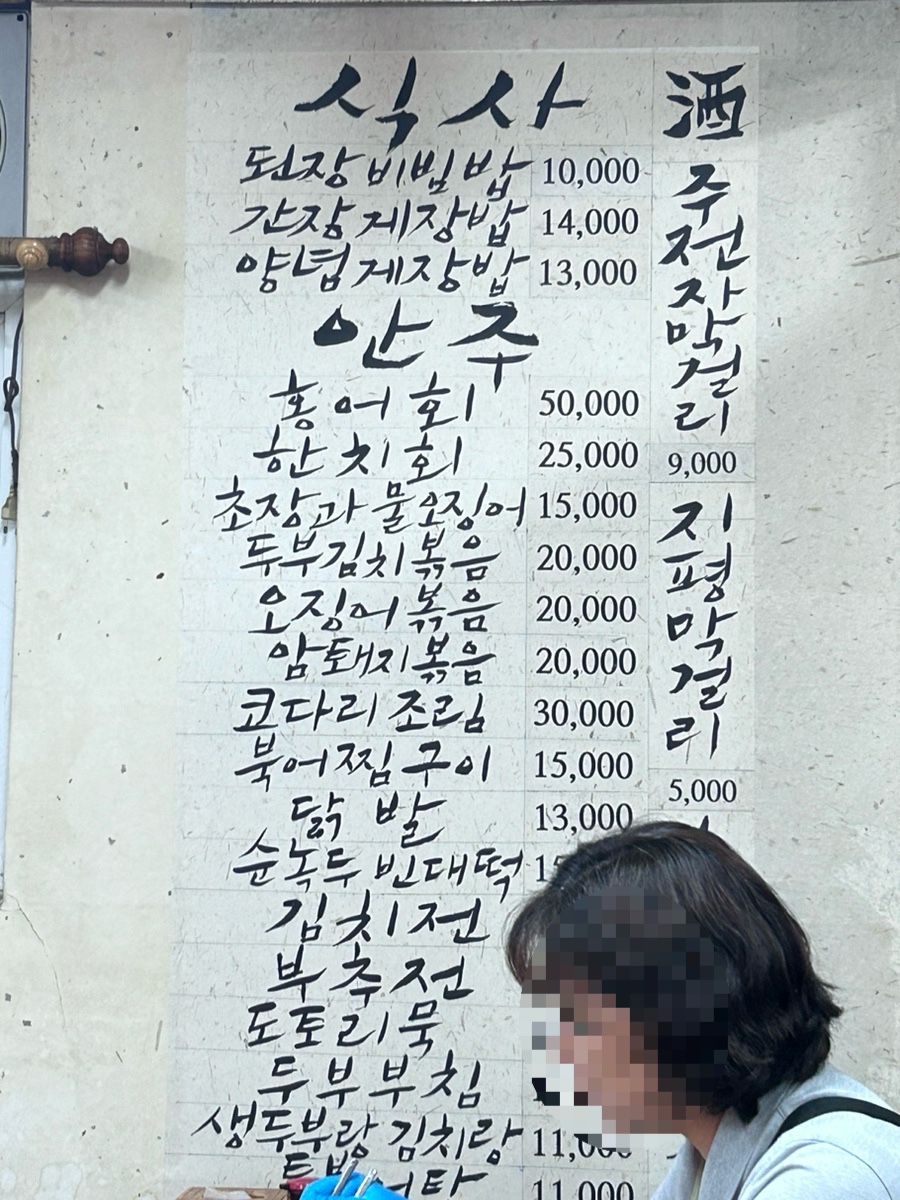 식사
된장비빔밥 10,000
간장게장밥 14,000
양념게장밥 13,000
안주
홍어회 50,000
한치회 25,000
초장과 물오징어 15,000
두부김치볶음 20,000
오징어볶음 20,000
암퇘지볶음 20,000
코다리조림 30,000
북어찜구이 15,000
닭발 13,000
순녹두빈대떡
김치전
부추전
도토리묵
두부부침
생두부랑 김치랑 11,000
11,000
酒
주전자막걸리
9,000
지평막걸리
5,000